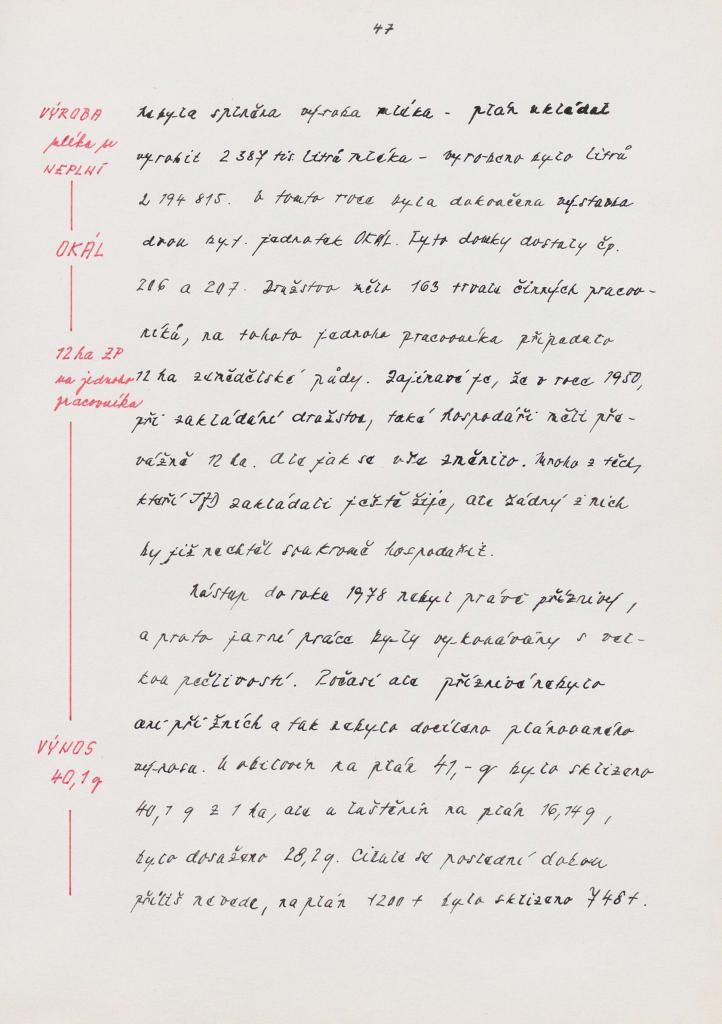 47
VÝROBA
mléka se
NEPLNÍ
OKÁL
12 ha ZP
na jednoho
pracovníka
VÝNOS
40,1 q
nebyla splněna výroba mléka - plán ukládal
vyrobit 2 387 tis litrů mléka - vyrobeno bylo litrů
2 194 815. V tomto roce byla dokončena výstavba
dvou byt. jednotek OKÁL. Tyto domky dostaly čp.
206 a 207. Družstvo mělo 163 trvale činných pracov-
níků, na tohoto jednoho pracovníka připadalo
12 ha zemědělské půdy. Zajímavé je, že v roce 1950,
při zakládání družstva, také hospodáři měli pře-
vážně 12 ha. Ale jak se vše změnilo. Mnoho z těch,
kteří JZD zakládali ještě žije, ale žádný z nich
by již nechtěl soukromě hospodařit.
Nástup do roku 1978 nebyl právě příznivý,
a proto jarní práce byly vykonávány s vel-
kou pečlivostí. Počasí ale příznivé nebylo
ani při žních a tak nebylo docíleno plánovaného
výnosu. U obilovin na plán 41,- q bylo sklizeno
40,1 q z 1 ha, ale u luštěnin na plán 16,14 q,
bylo dosaženo 28,2 q. Cibuli se poslední dobou
příliš nevede, na plán 1200 t bylo sklizeno 748 t.